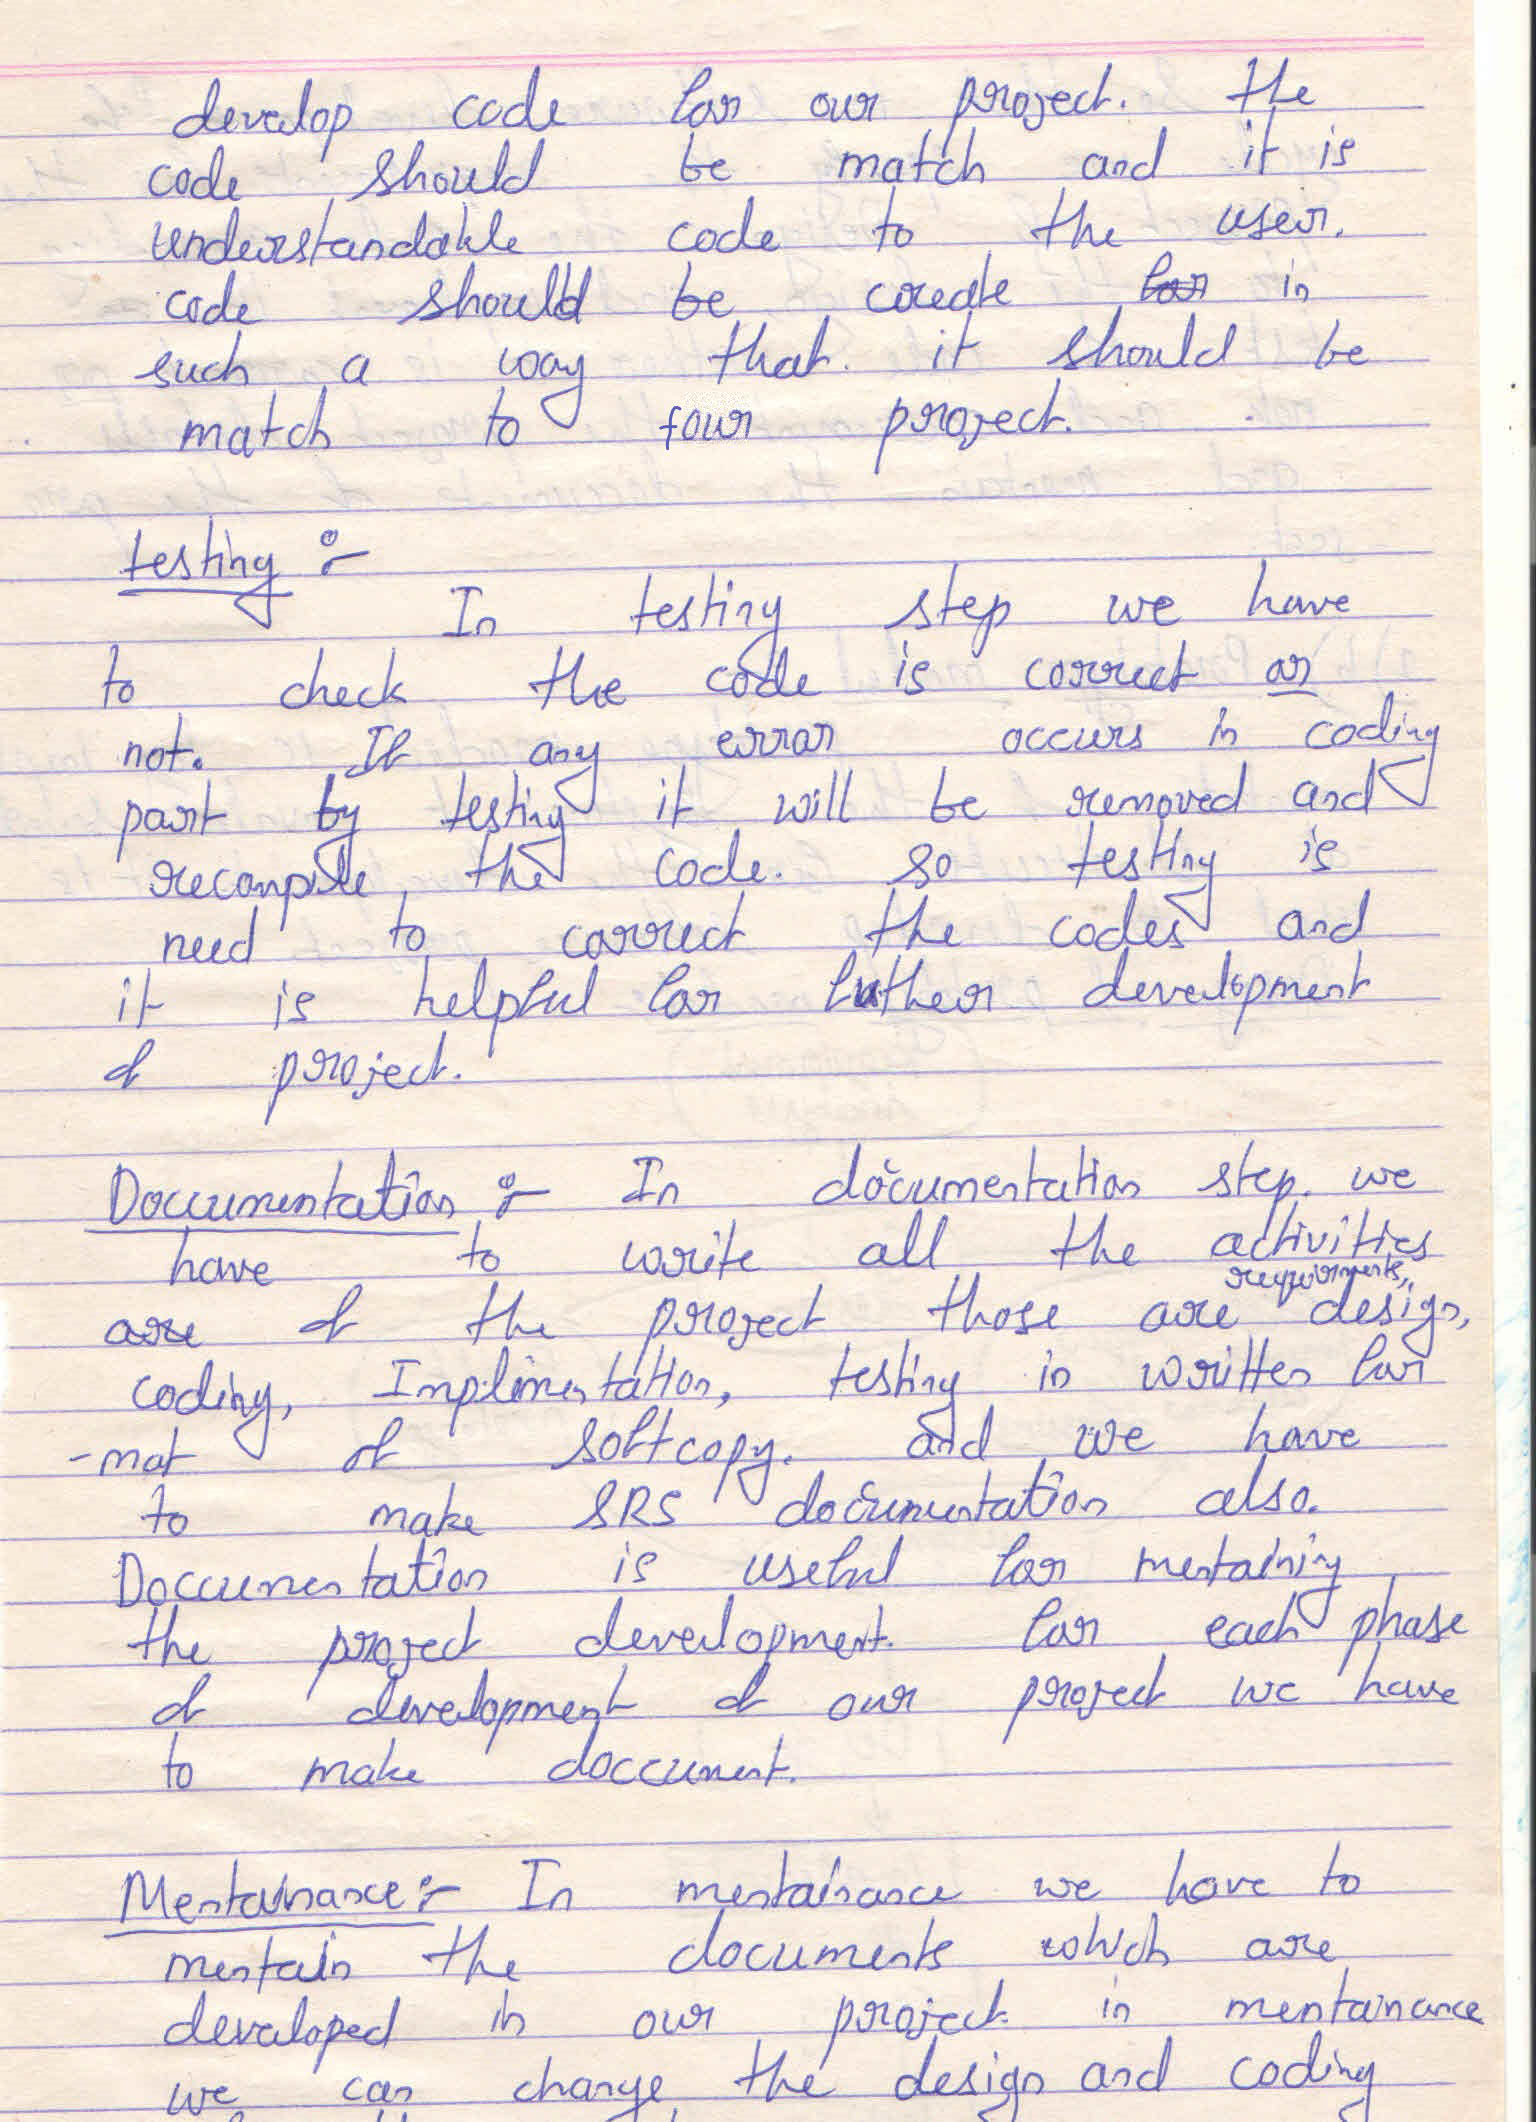 develop code for our project. the
code should be match and it is
understandable code to the user.
code should be create for in
such a way that. it should be
match to four project.
testing :-
In testing step we have
to check the code is correct or
not. If any error occurs in coding
part by testing it will be removed and
recompile, the code. so testing is
need to correct the codes and
it is helpful for futher development
of project.
Doccumentation :- In documentation step. we
have to write all the activities
are of the project those are requirments, design,
coding, Implimentation, testing in written for
-mat of softcopy. and we have
to make SRS documentation also.
Doccumentation is useful for mentaining
the project development. for each phase
of development of our project we have
to make doccument.
Mentainance :- In mentainance we have to
mentain the documents which are
developed in our project in mentainance
we can change the design and coding